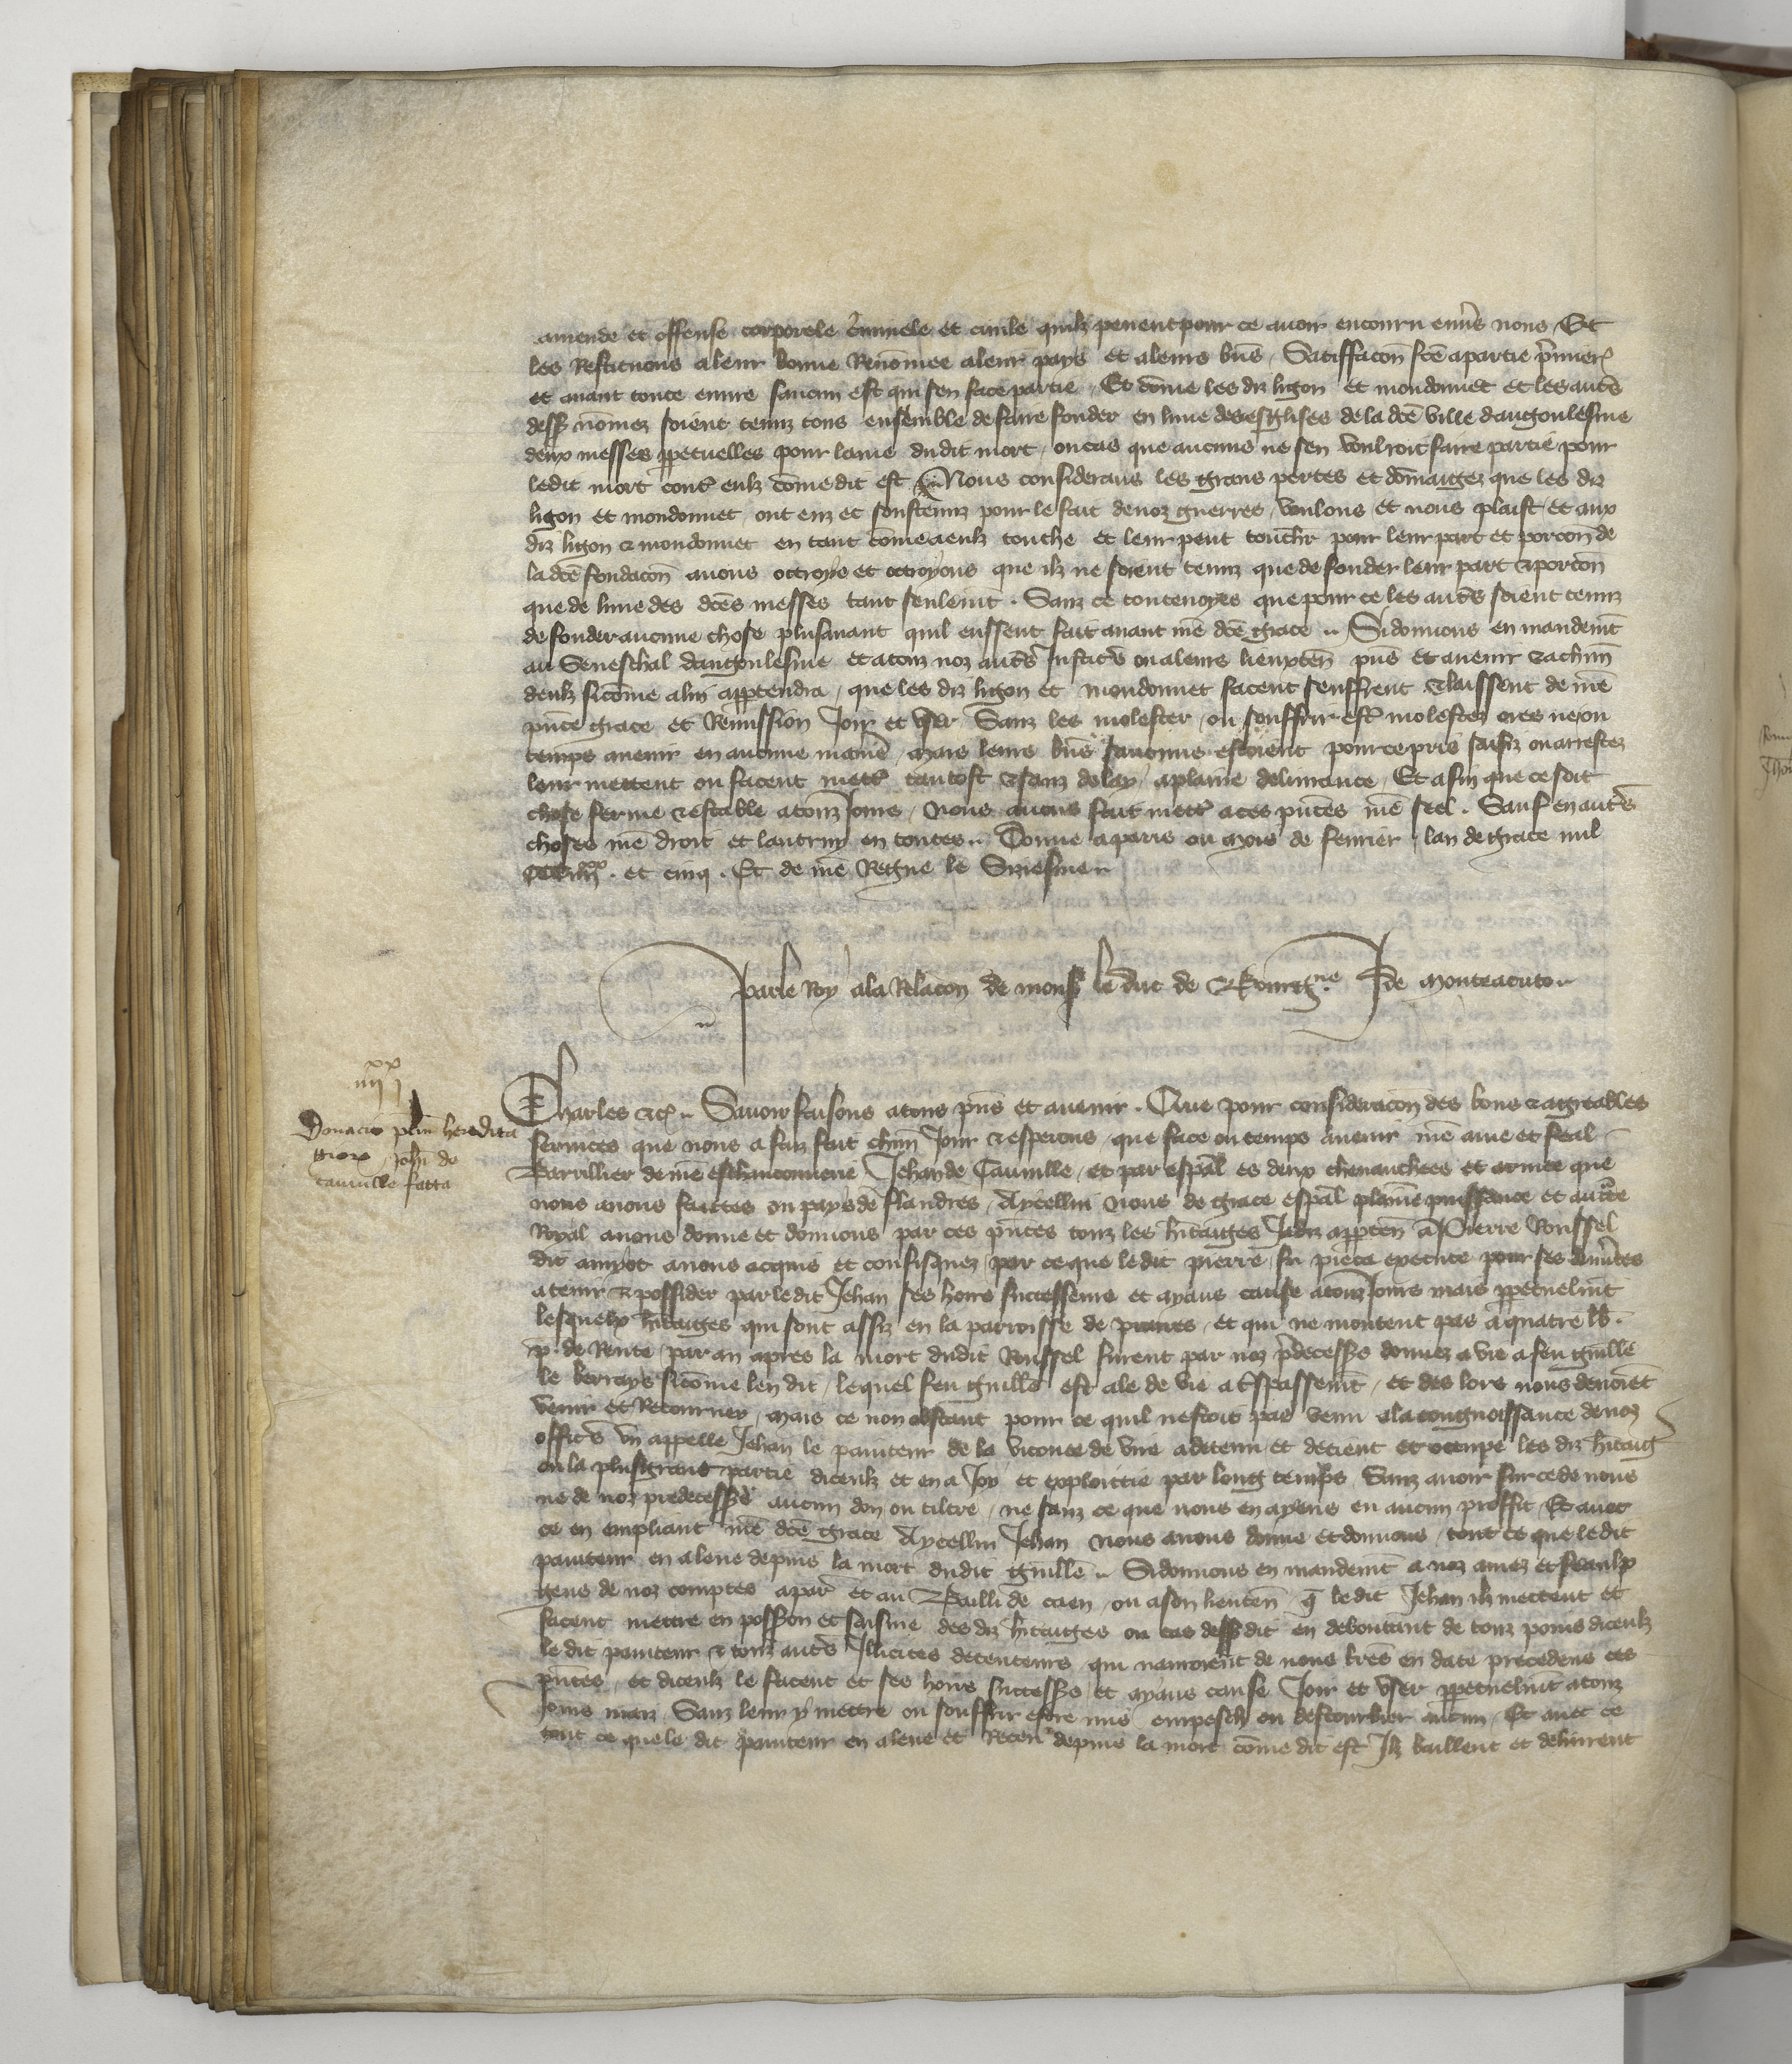 amende et offense corporele criminele et civile quilz pevent pour ce avoir encouru envers nous Et
les Restituons a leur bonne Renōmee a leur pays et a leurs biens. Satiffacōn fcē a partie p̄mierz
et avant toute euvre saucun est qui sen face partie. Et cōme les diz ligon et mondonnet et les autres
dessz nōmez soient tenuz tous ensemble de faire fonder en lune des esglises de la dcē ville dangoulesme
deux messes ꝑpetuelles pour lame dudit mort, ou cas que aucuns ne sen vouldroit faire partie pour
ledit mort contre eulz cōme dit est Nous considerans les grans pertes et dōmaiges que les diz
ligon et mondonnet ont euz et soustenuz pour le fait de noz guerres, voulons et nous plaist et aux
diz ligon & mondonnet en tant cōme a eulz touche et leur peut toucher pour leur part et porcōn de
la dcē fondacōn avons octroye et octroyons que ilz ne soient tenuz que de fonder leur part & porcōn
que de lune des dcēs messes tant seulemt. Sanz ce toutevoyes que pour ce les autres soient tenuz
de fonder aucune chose plus avant quil eussent fait avant nrē dcē grace. Si donnons en mandemt
au Seneschal dangoulesme et a touz noz autres Justiciers ou a leurs lieuxten̄ pn̄s et avenir & a chūn
deulz sicōme a lui appartendra, que les diz ligon et mondonnet facent seuffrent & laissent de nrē
pn̄te grace et Remission Joir et user Sanz les molester, ou souffrir estre molestez ores ne ou
temps avenir en aucune maniere, mais leurs biens saucuns estoient pour ce pris saisiz ou arrestez
leur mettent ou facent mettre tantost & sanz delay a plaine delivrance. Et afin que ce soit
chose ferme & estable a touzJours, Nous avons fait mettre a ces pn̄tes nrē seel. Sauf en autres
choses nrē droit et lautruy en toutes. Donne a paris ou mois de fevrier, lan de grace mil
CCC iiiixx. et cinq. Et de nrē Regne le Siziesme
Par le Roy a la Relacōn de monsz le duc de Bourggne J de monteacuto
iiiixx j
Charles &cz. Savoir faisons a tous pn̄s et avenir. Que pour consideracōn des bons & agreables
Donacio heredita
services que nous a faiz fait chūn Jour & esperons que face ou temps avenir nrē ame et feal
Joh̄i de
Barillier de nrē eschanconnerie Jehan de Cauville, et par esp̄al es deux chevauchees et armee que
cauville facta
nous avons faictes ou pays de flandres, A ycellui Nous de grace esp̄al plaine puissance et aucte
Royal avons donne et donnons par ces pn̄tes touz les h̄itaiges Jadiz apparten̄ a Pierre Roussel
dit amiot a nous acquis et confisquez, par ce que ledit pierre fu pieca execute pour ses demerites
a tenir & possider par ledit Jehan ses hoirs successeurs et ayans cause a touzJours mais ꝑpetuelmt
lesquelx h̄itaiges qui sont assiz en la parroisse de et qui ne montent pas a quatre lb̄.
tz. de Rente par an apres la mort dudit Roussel furent par noz p̄decessrs donnez a vie a feu guille
le berrays sicōme len dit, lequel feu guille est ale de vie a trespassemt, et des lors nous devoiēt
venir et Retourner, mais ce non obstant pour ce quil nestoit pas venu a la congnoissance de noz
officiers Un appelle Jehan le paniteur de la viconte de vire a detenu et detient et occupe les diz h̄itaig
ou la plusgrant partie diceulz et en a Joy et exploittie par long temps Sanz avoir sur ce de nous
ne de noz predecessrs aucun don ou tiltre, ne sanz ce que nous en ayens eu aucun proffit. Et avec
ce en empliant nrē dcē grace A ycellui Jehan Nous avons donne et donnons, tout ce que ledit
paniteur en a leve depuis la mort dudit guille. Si donnons en mandemt a noz amez et feaulx
gens de noz comptes a par̄ et au Bailli de caen, ou a son lieuten̄ q̄ ledit Jehan ilz mettent et
facent mettre en possion et saisine des diz h̄itaiges ou cas dessz dit en deboutant de touz poins diceulz
le dit paniteur & touz autres Illicites detenteurs, qui nauroient de nous lr̄es en date precedens ces
pn̄tes, et diceulz le facent et ses hoirs successrs et ayans cause Joir et user ꝑpetuelmt a touz
Jours maiz Sanz leur y mettre ou souffrir estre mis empesch ou destourbier aucun. Et avec ce
tout ce que le dit paniteur en a leve et Receu depuis la mort cōme dit est Ilz baillent et delivrent